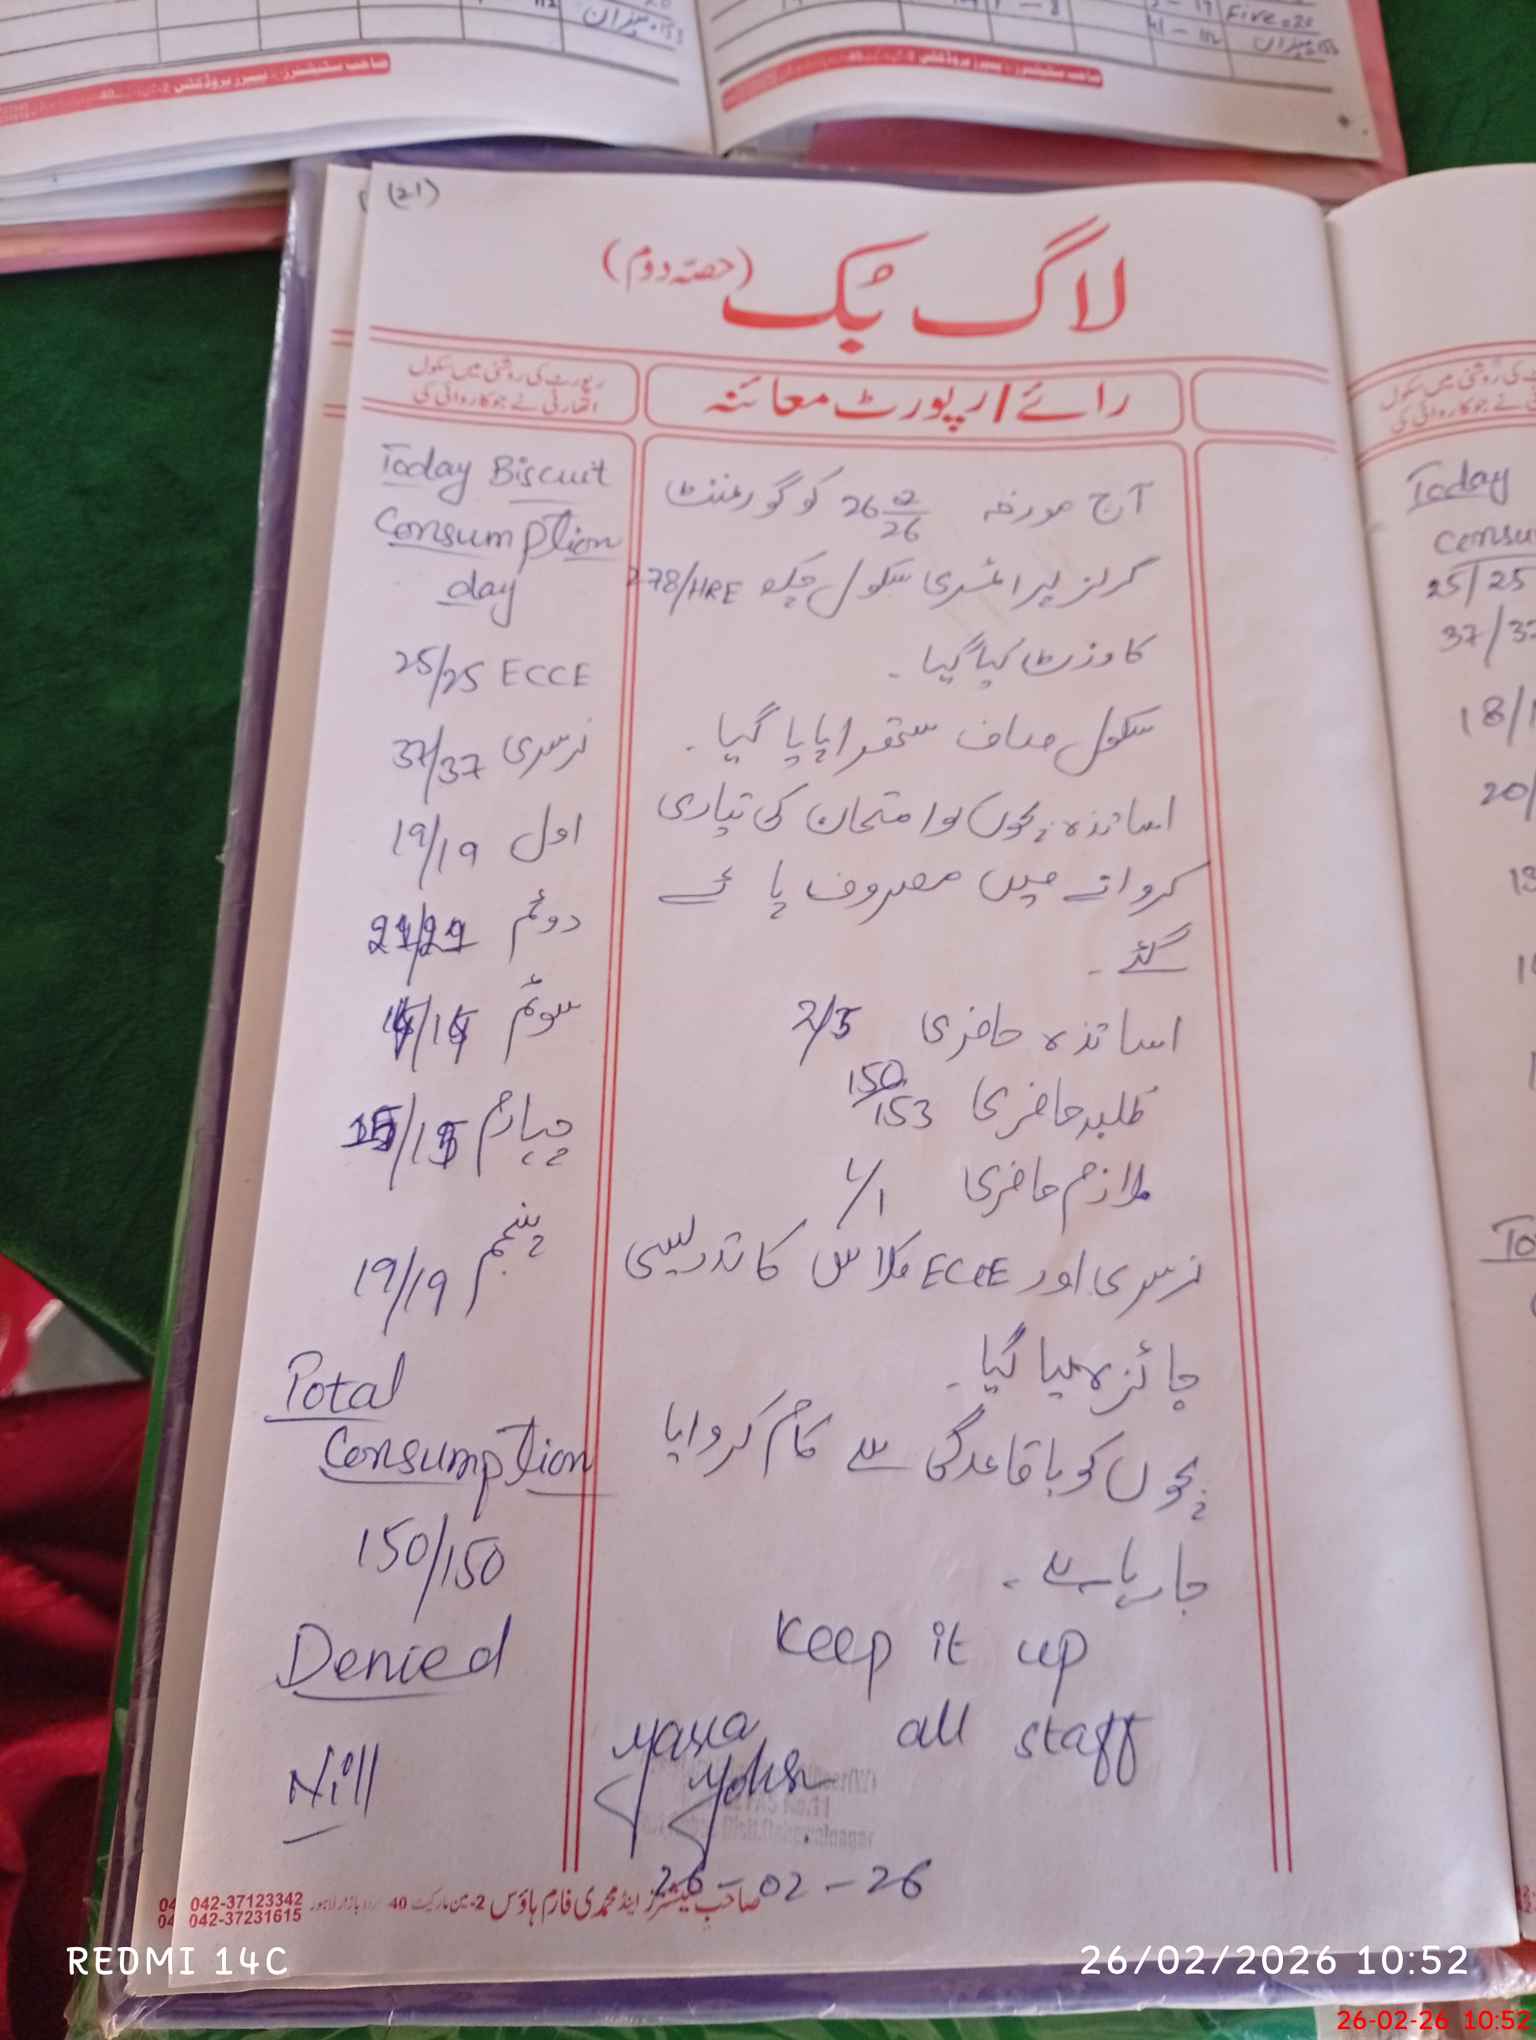 (21)
لاگ بک (حصہ دوم)
رائے / رپورٹ معائنہ
رپورٹ کی روشنی میں سکول
اتھارٹی نے جو کاروائی کی
آج مورخہ 26 02/26 کو گورنمنٹ
گرلز پرائمری سکول چک 278/HRE
کا وزٹ کیا گیا۔
سکول صاف ستھرا پایا گیا۔
اساتذہ بچوں کو امتحان کی تیاری
کروانے میں مصروف پائے
گئے۔
اساتذہ حاضری 2/5
طلبہ حاضری 150/153
ملازم حاضری 1/1
نرسری اور ECCE کلاس کا تدریسی
جائزہ لیا گیا۔
بچوں کو باقاعدگی سے کام کروایا
جا رہا ہے۔
Keep it up
all staff
26-02-26
Today Biscuit
Consumption
day
25/25 ECCE
نرسری 37/37
اول 19/19
دوئم 21/21
سوئم
چہارم
پنجم 19/19
Total
Consumption
150/150
Denied
Nill
صاحب سٹیشنرز اینڈ محمدی فارم ہاؤس 2-مین مارکیٹ 40-اردو بازار لاہور
042-37123342
042-37231615
صاحب سٹیشنرز - پیپر پروڈکٹس
صاحب سٹیشنرز - پیپر پروڈکٹس
میزان
Five=20
میزان
Today
25/25
18/
20/
REDMI 14C
26/02/2026 10:52
26-02-26 10:52